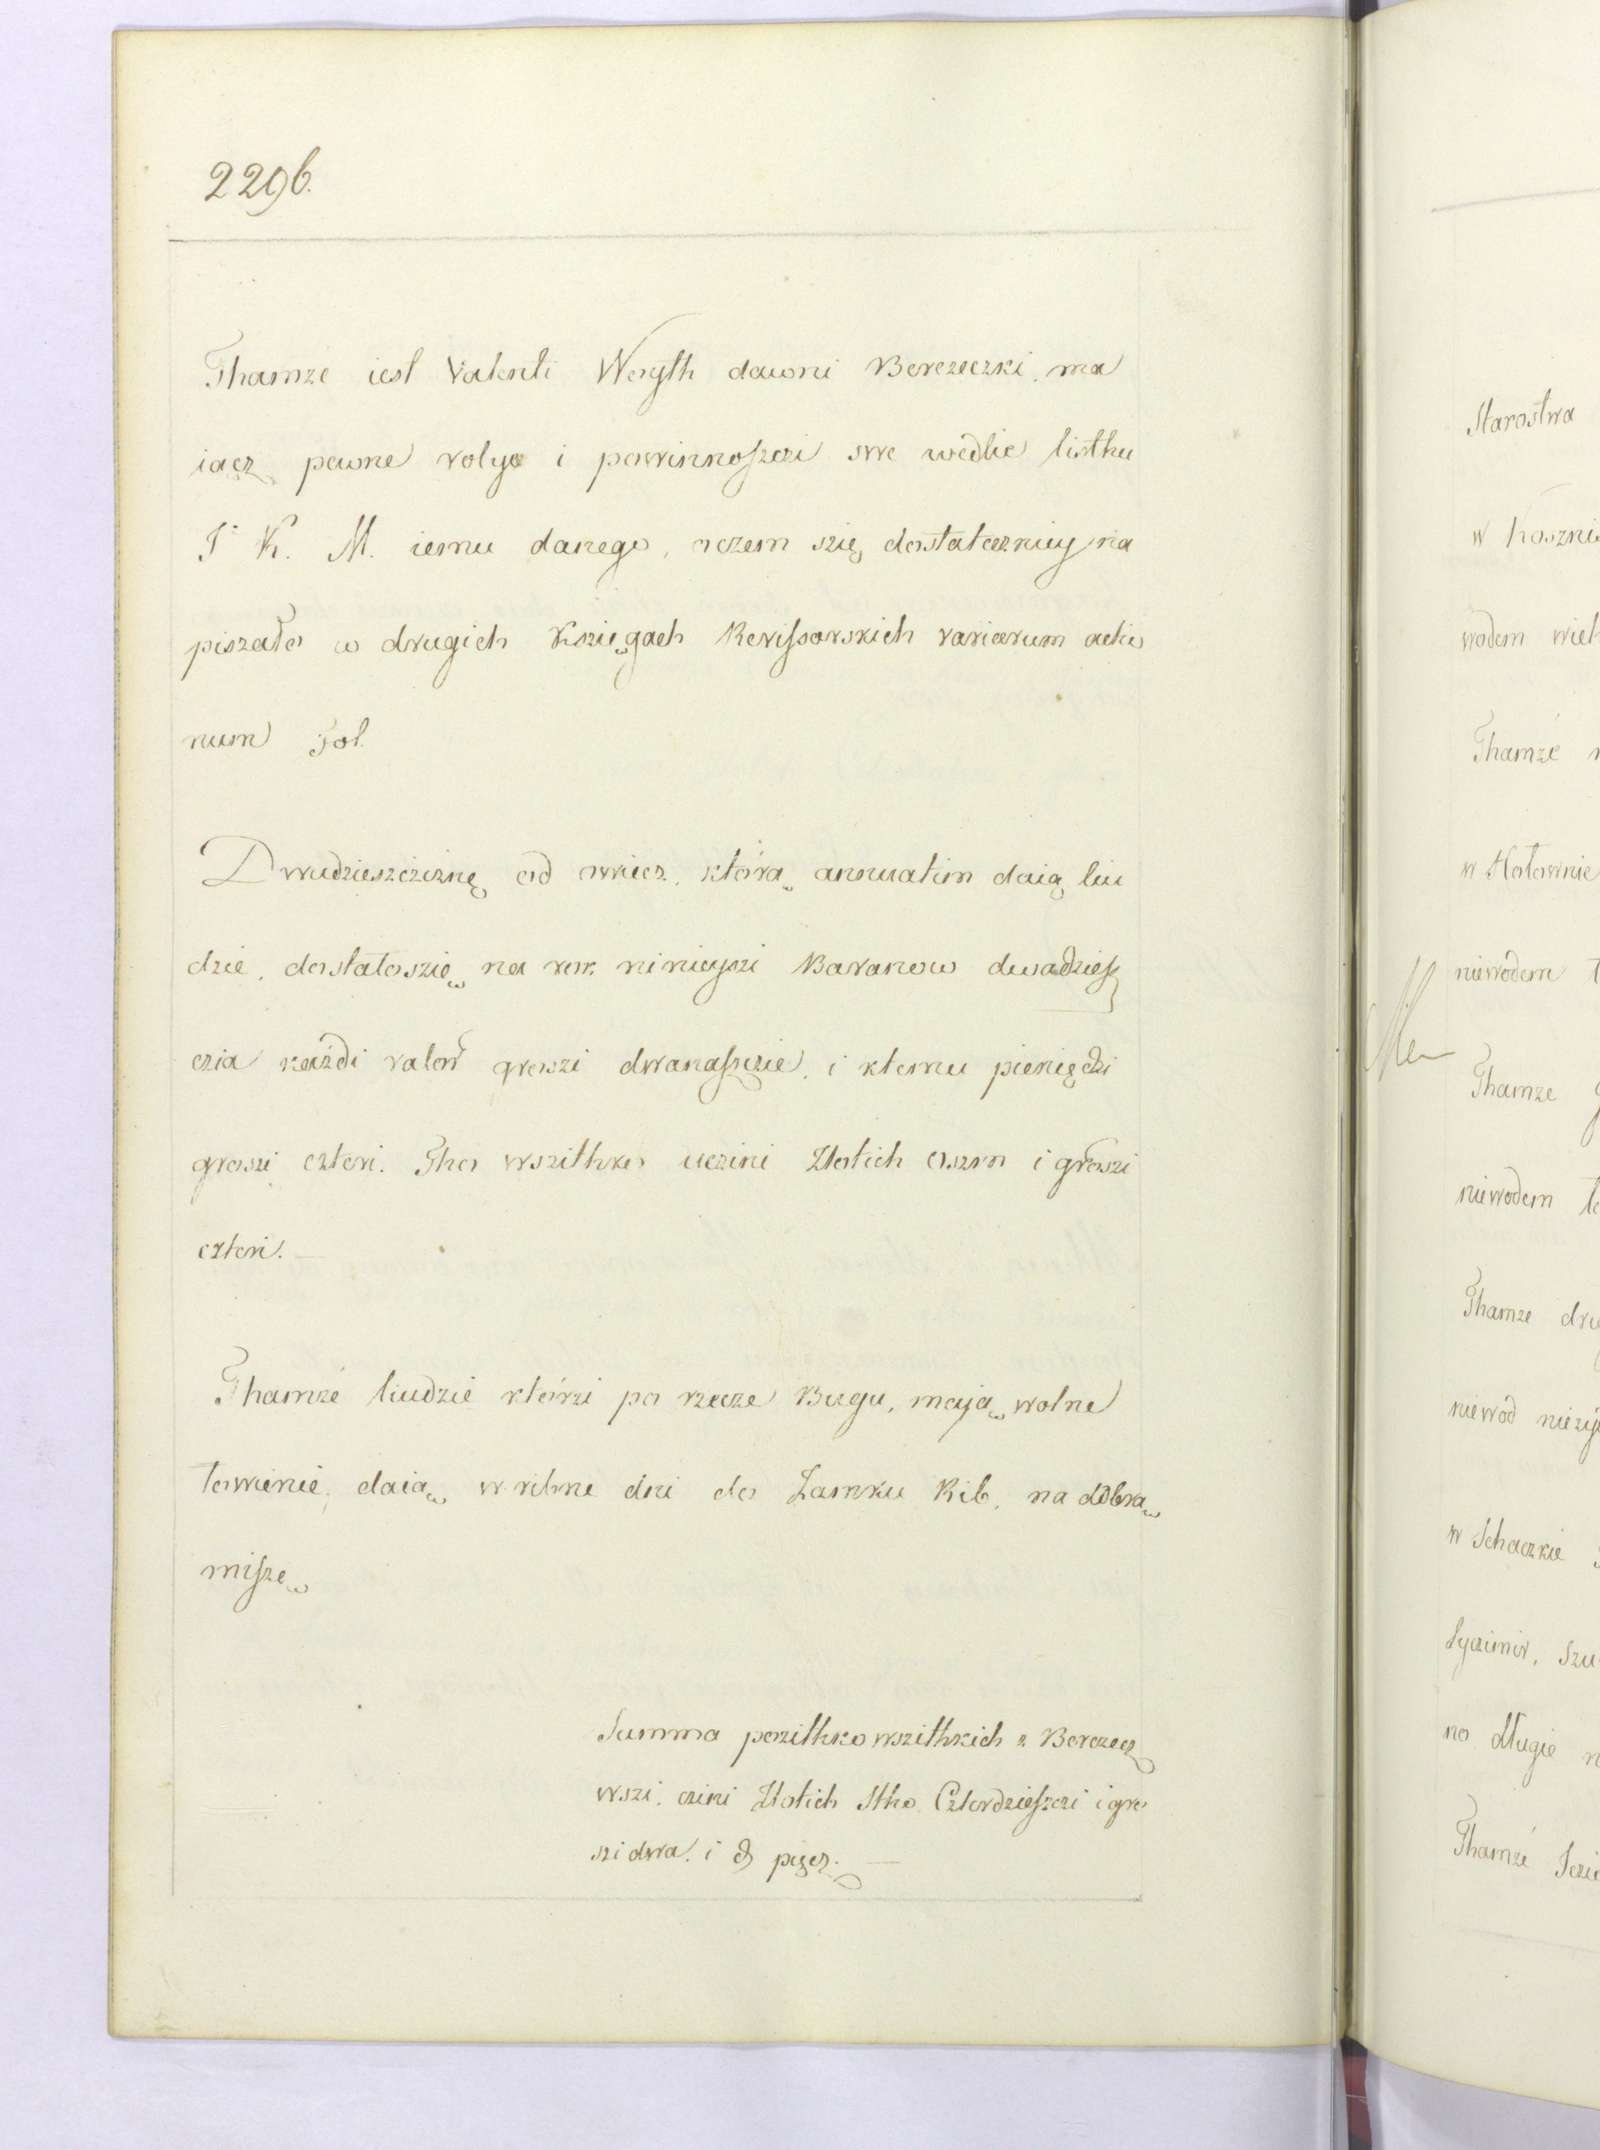 229b.
Thamże iest Valenti Weryth dawni Berezeczki, ma
iącz pewne rolye i powinnoſzczi swe wedlie listhu
J K. M. iemu danego, oczem szię dostateczniey na
piszało w drugich Kzięgach Revisſorskich variarum actio
num Fol.
Dwudzieszcziznę od owiecz, którą annuatim daią liu
dzie, dostałoszię na rok ninieyszi Baranow dwadzieſz
czia każdi valor groszi dwanaſzczie, i ktemu pieniędzi
groszi czteri. Tho wszithko uczini Złotich oszm i groszi
czteri.
Thamże liudzie którzi po rzecze Bugu, mayą wolne
łowienie, daią w ribne dni do Zamku Rib, na dobrą
miſzę
Summa pozithko wszithkich z Berezecz
wszi, czini Złotich Stho Czterdzieſzczi i gro
szi dwa. i d pięcz.
Starostwa
w
wodem wiel
Thamże
niewodem
Thamze
niewodem
Thamze dru
niewod
w Schaczkie
no długie
Thamże